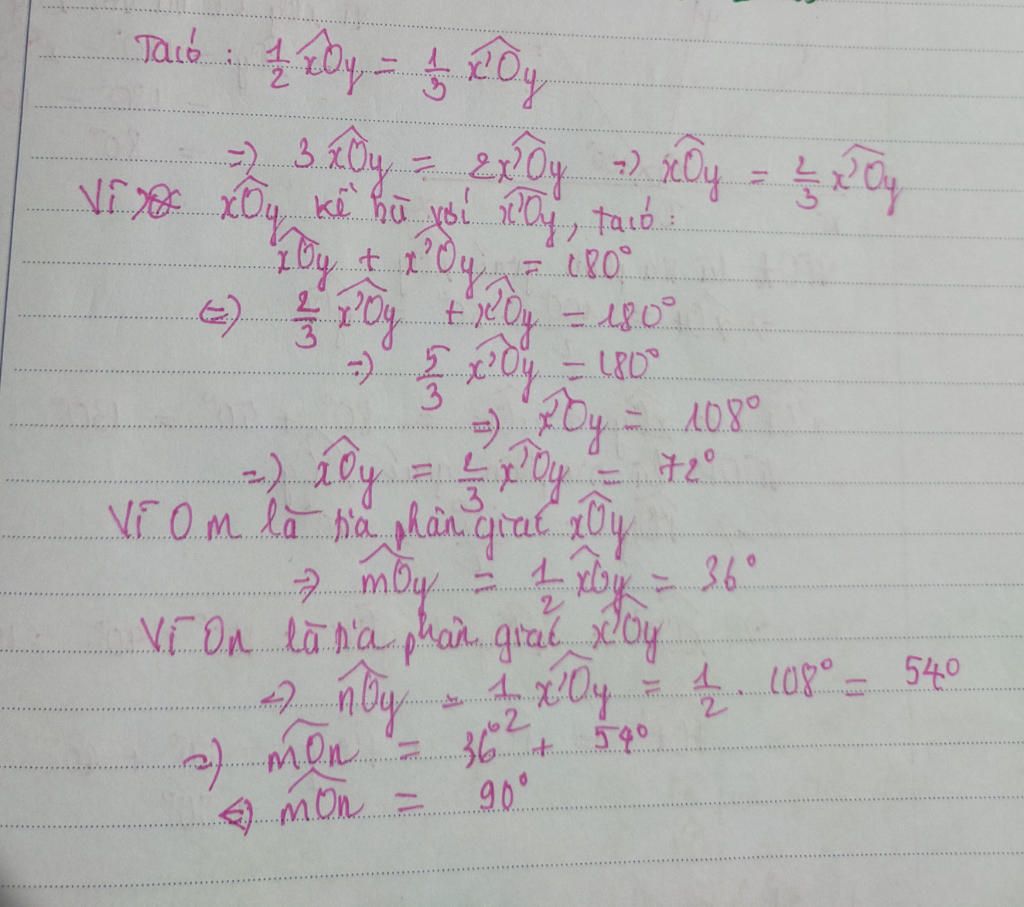 Ta có : 1/2 xOy = 1/3 x'Oy
=> 3 xOy = 2 x'Oy => xOy = 2/3 x'Oy
Vì xOy kề bù với x'Oy, ta có :
xOy + x'Oy = 180°
<=> 2/3 x'Oy + x'Oy = 180°
=> 5/3 x'Oy = 180°
=> x'Oy = 108°
=> xOy = 2/3 x'Oy = 72°
Vì Om là tia phân giác xOy
=> mOy = 1/2 xOy = 36°
Vì On là tia phân giác x'Oy
=> nOy = 1/2 x'Oy = 1/2 . 108° = 54°
=> mOn = 36° + 54°
<=> mOn = 90°